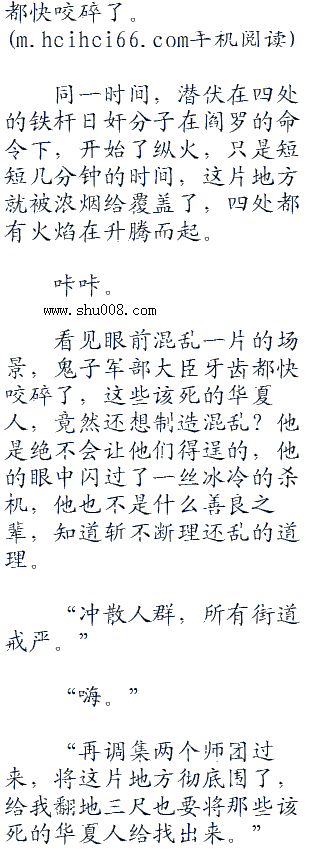 都快咬碎了。
(m.hcihci66.com手机阅读)
同一时间，潜伏在四处
的铁杆日奸分子在阎罗的命
令下，开始了纵火，只是短
短几分钟的时间，这片地方
就被浓烟给覆盖了，四处都
有火焰在升腾而起。
咔咔。
www.shu008.com
看见眼前混乱一片的场
景，鬼子军部大臣牙齿都快
咬碎了，这些该死的华夏
人，竟然还想制造混乱？他
是绝不会让他们得逞的，他
的眼中闪过了一丝冰冷的杀
机，他也不是什么善良之
辈，知道斩不断理还乱的道
理。
“冲散人群，所有街道
戒严。”
“嗨。”
“再调集两个师团过
来，将这片地方彻底围了，
给我翻地三尺也要将那些该
死的华夏人给找出来。”